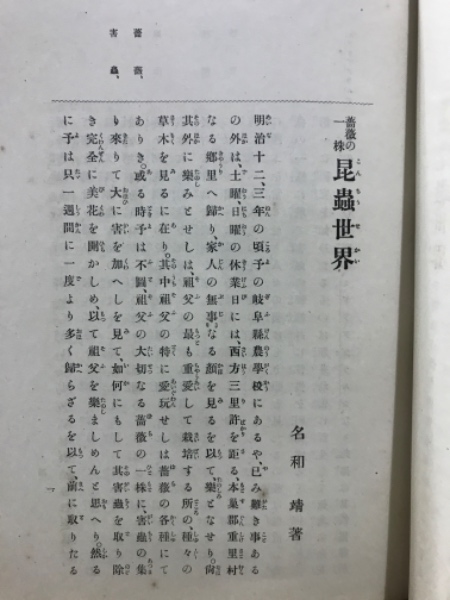 薔薇の一株 昆蟲世界
名和 靖著
明治十二、三年の頃予の岐阜縣農學校にあるや、已み難き事ある
の外は、土曜、日曜の休業日には、西方三里許を距る本巣郡重里村
なる郷里へ歸り、家人の無事なる顏を見るを以て、樂となせり。尙
其外に樂みとせしは、祖父の最も重愛して栽培する所の、種々の
草木を見るに在り。其中祖父の特に愛玩せしは薔薇の各種にて
ありき。或る時予は不圖、祖父の大切なる薔薇の一株に、害蟲の集
り來りて大に害を加へしを見て、如何にもして其害蟲を取り除
き完全に美花を開かしめ、以て祖父を樂ましめんと思へり。然る
に予は只、一週間に一度より多く歸らざるを以て、前に取りたる
薔薇、
害蟲、
一